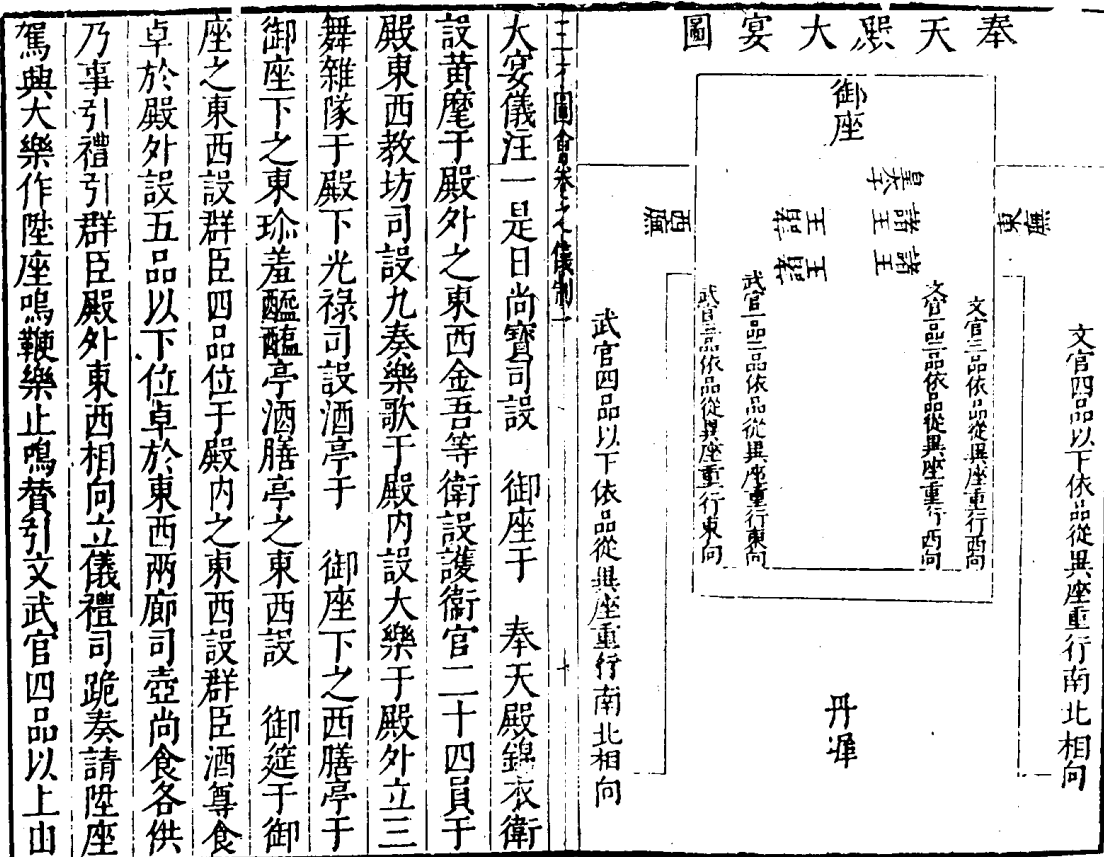 奉天殿大宴圖
御座
皇太子
諸王
諸王
諸王
諸王
東廡
西廡
文官一品二品依品從異座重行西向
文官三品依品從異座重行西向
武官一品二品依品從異座重行東向
武官三品依品從異座重行東向
文官四品以下依品從異座重行南北相向
武官四品以下依品從異座重行南北相向
丹墀
三才圖會 儀制
大宴儀注一是日尚寶司設 御座于 奉天殿錦衣衛
設黃麾于殿外之東西金吾等衛設護衛官二十四員于
殿東西教坊司設九奏樂歌于殿內設大樂于殿外立三
舞雜隊于殿下光祿司設酒亭于 御座下之西膳亭于
御座下之東珍羞醯醢亭酒膳亭之東西設 御筵于御
座之東西設群臣四品位于殿內之東西設群臣酒尊食
卓於殿外設五品以下位卓於東西兩廊司壺尚食各供
乃事引禮引群臣殿外東西相向立儀禮司跪奏請陞座
駕興大樂作陞座鳴鞭樂止鳴贊引文武官四品以上由